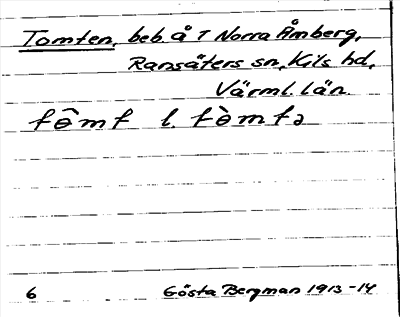 Tomten, beb. å 1 Norra Åmberg,
Ransäters sn, Kils hd,
Värml. län.
fômf l. fòmfə
6 Gösta Bergman 1913-14